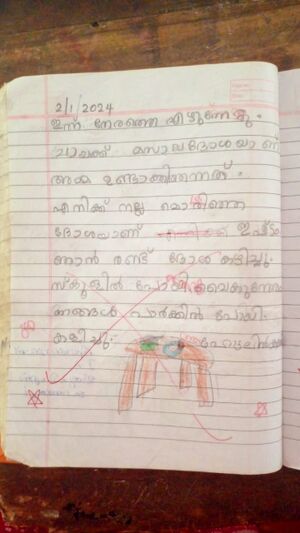 2/1/2024
ഇന്ന് നേരത്തെ എഴുന്നേറ്റു.
ചായക്ക് മസാലദോശയാണ്
അമ്മ ഉണ്ടാക്കിത്തന്നത്.
എനിക്ക് നല്ല മൊരിഞ്ഞ
ദോശയാണ് ഇഷ്ടം
ഞാൻ രണ്ട് ദോശ കഴിച്ചു.
സ്കൂളിൽ പോയി വൈകുന്നേരം
ഞങ്ങൾ പാർക്കിൽ പോയി
കളിച്ചു.